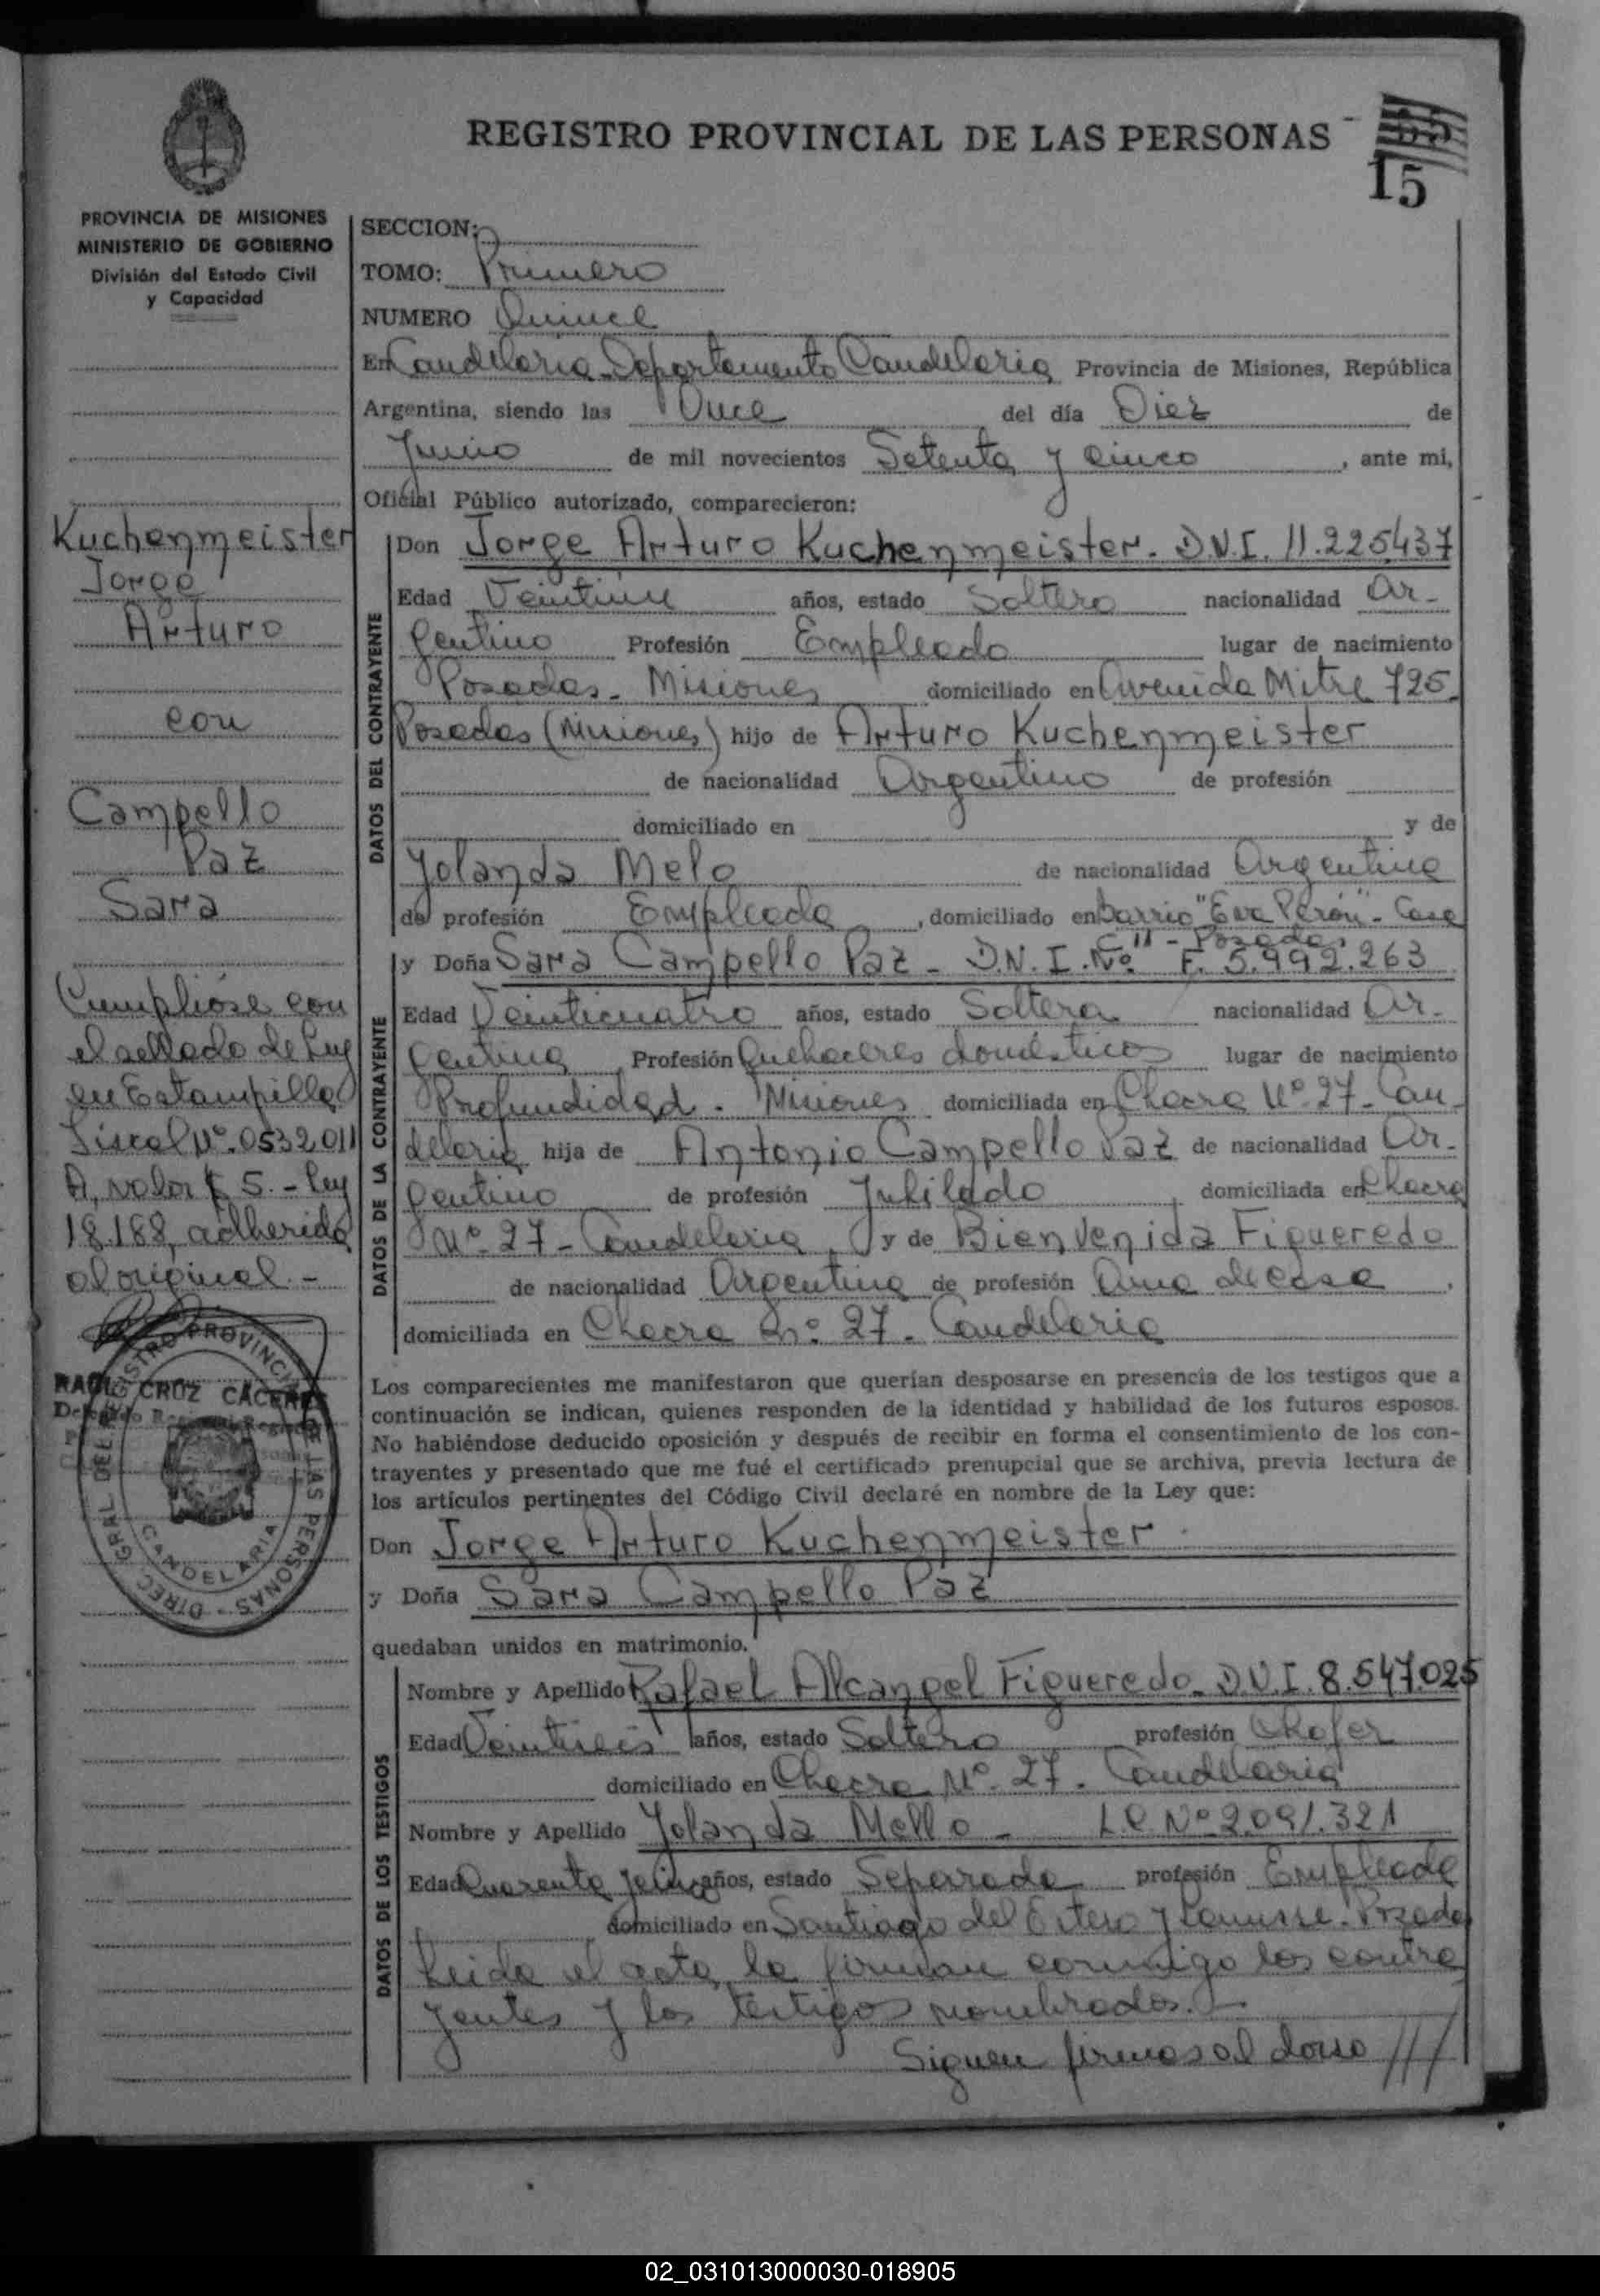 REGISTRO PROVINCIAL DE LAS PERSONAS
15
PROVINCIA DE MISIONES
MINISTERIO DE GOBIERNO
División del Estado Civil
y Capacidad
Kuchenmeister
Jorge
Arturo
con
Campello
Paz
Sara
Cumplióse con
el sellado de Ley
en Estampilla
Fiscal Nº 0532011
A, valor $ 5.- Ley
18.188, adherida
al original.-
RAUL CRUZ CACERES
CANDELARIA
SECCION:
TOMO: Primero
NUMERO Quince
En Candelaria-Departamento Candelaria Provincia de Misiones, República
Argentina, siendo las Once del día Diez de
Junio de mil novecientos Setenta y cinco, ante mi,
Oficial Público autorizado, comparecieron:
DATOS DEL CONTRAYENTE
Don Jorge Arturo Kuchenmeister. D.N.I. 11.225437
Edad Veintiún años, estado Soltero nacionalidad Ar-
gentino Profesión Empleado lugar de nacimiento
Posadas - Misiones domiciliado en Avenida Mitre 725.
Posadas (Misiones) hijo de Arturo Kuchenmeister
de nacionalidad Argentino de profesión
domiciliado en y de
Yolanda Melo de nacionalidad Argentina
de profesión Empleada, domiciliado en barrio "Eva Perón" - Casa
C 11 - Posadas
DATOS DE LA CONTRAYENTE
y Doña Sara Campello Paz - D.N.I. Nº F. 5.992.263
Edad Veinticuatro años, estado Soltera nacionalidad Ar-
gentina Profesión Quehaceres domésticos lugar de nacimiento
Profundidad - Misiones domiciliada en Chacra Nº 27- Can-
delaria hija de Antonio Campello Paz de nacionalidad Ar-
gentino de profesión Jubilado, domiciliada en Chacra
Nº 27 - Candelaria, y de Bienvenida Figueredo
de nacionalidad Argentina de profesión Ama de casa,
domiciliada en Chacra Nº 27. Candelaria
Los comparecientes me manifestaron que querían desposarse en presencia de los testigos que a
continuación se indican, quienes responden de la identidad y habilidad de los futuros esposos.
No habiéndose deducido oposición y después de recibir en forma el consentimiento de los con-
trayentes y presentado que me fué el certificado prenupcial que se archiva, previa lectura de
los artículos pertinentes del Código Civil declaré en nombre de la Ley que:
Don Jorge Arturo Kuchenmeister
y Doña Sara Campello Paz
quedaban unidos en matrimonio.
DATOS DE LOS TESTIGOS
Nombre y Apellido Rafael Alcangel Figueredo. D.N.I. 8.547.025
Edad Veintiseis años, estado Soltero profesión Chofer
domiciliado en Chacra Nº 27. Candelaria
Nombre y Apellido Yolanda Mello - L.C. Nº 2.091.321
Edad Cuarenta y cinco años, estado Separada profesión Empleada
domiciliado en Santiago del Estero y Lanusse. Posadas
Leida el acta, la firman conmigo los contra
yentes y los testigos nombrados.-
Siguen firmas al dorso ///
02_031013000030-018905